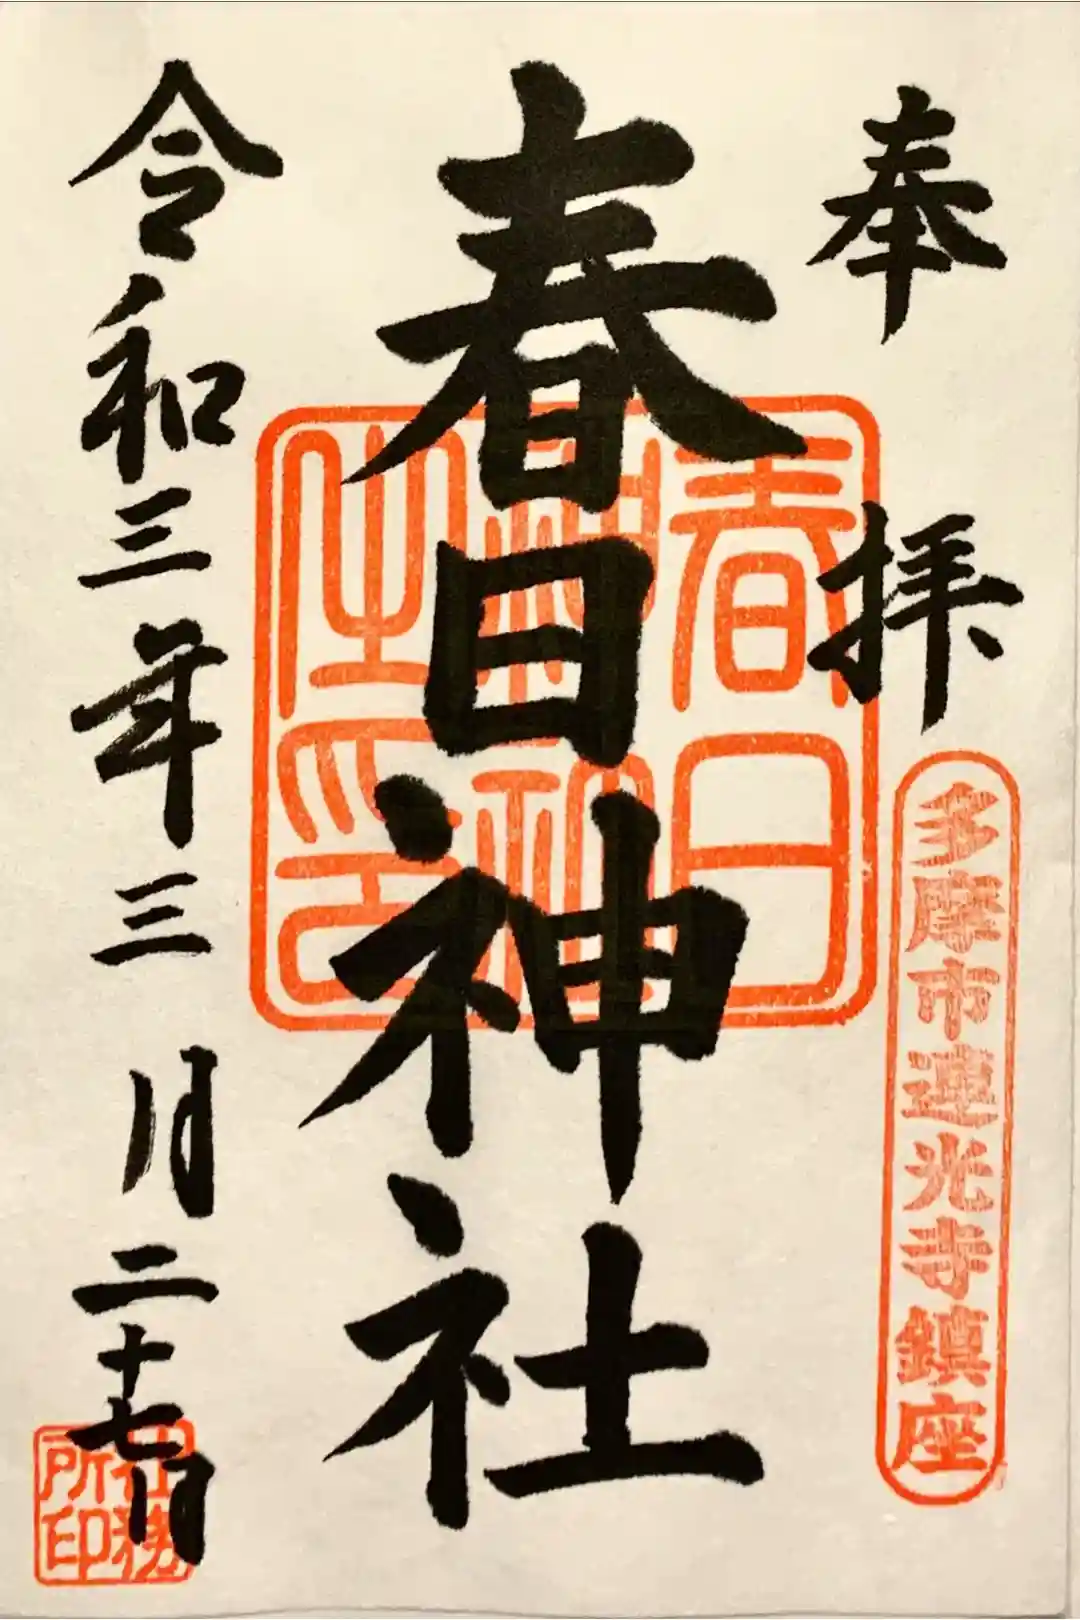 奉拝
多摩市連光寺鎮座
春日神社
春日神社之印
令和三年三月二十七日
社務所印